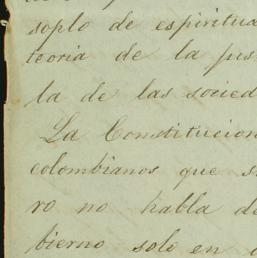 soplo de espiritua
teoria de la jus
la de las socied
La Constitucion
colombianos que s
ro no habla de
bierno solo en